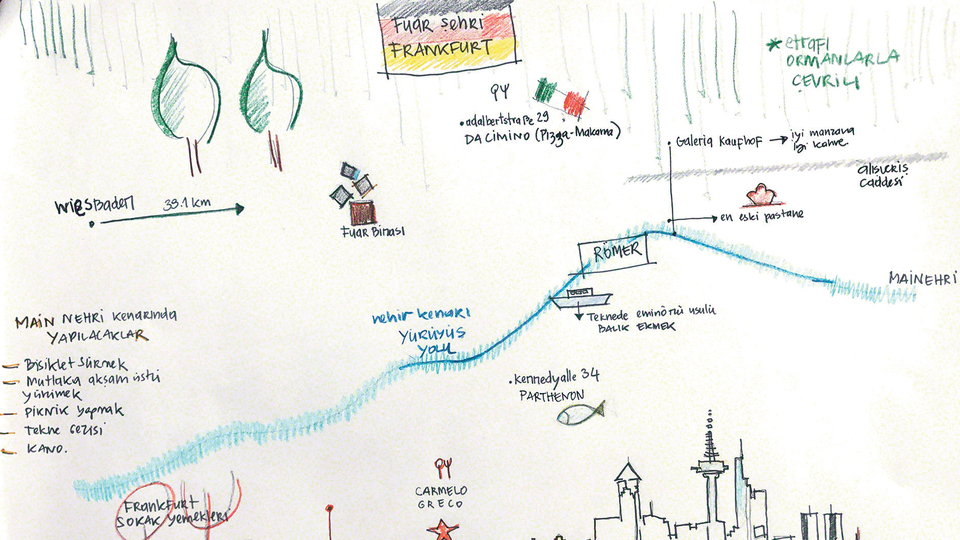 FUAR ŞEHRİ
FRANKFURT
*etrafı
ORMANLARLA
ÇEVRİLİ
•adalbertstraße 29
DA CIMINO (Pizza-Makarna)
Galeria Kaufhof → iyi manzara
iyi kahve
alışveriş
caddesi
en eski pastane
Wiesbaden 39.1 km
Fuar Binası
RÖMER
MAINEHRİ
Teknede eminönü usulü
BALIK EKMEK
nehir kenarı
YÜRÜYÜŞ
YOLU
MAIN NEHRİ kenarında
YAPILACAKLAR
– Bisiklet sürmek
– Mutlaka akşam üstü
yürümek
– Piknik yapmak
– Tekne Gezisi
– KANO.
•Kennedyalle 34
PARTHENON
CARMELO
GRECO
FRANKFURT
SOKAK yemekleri